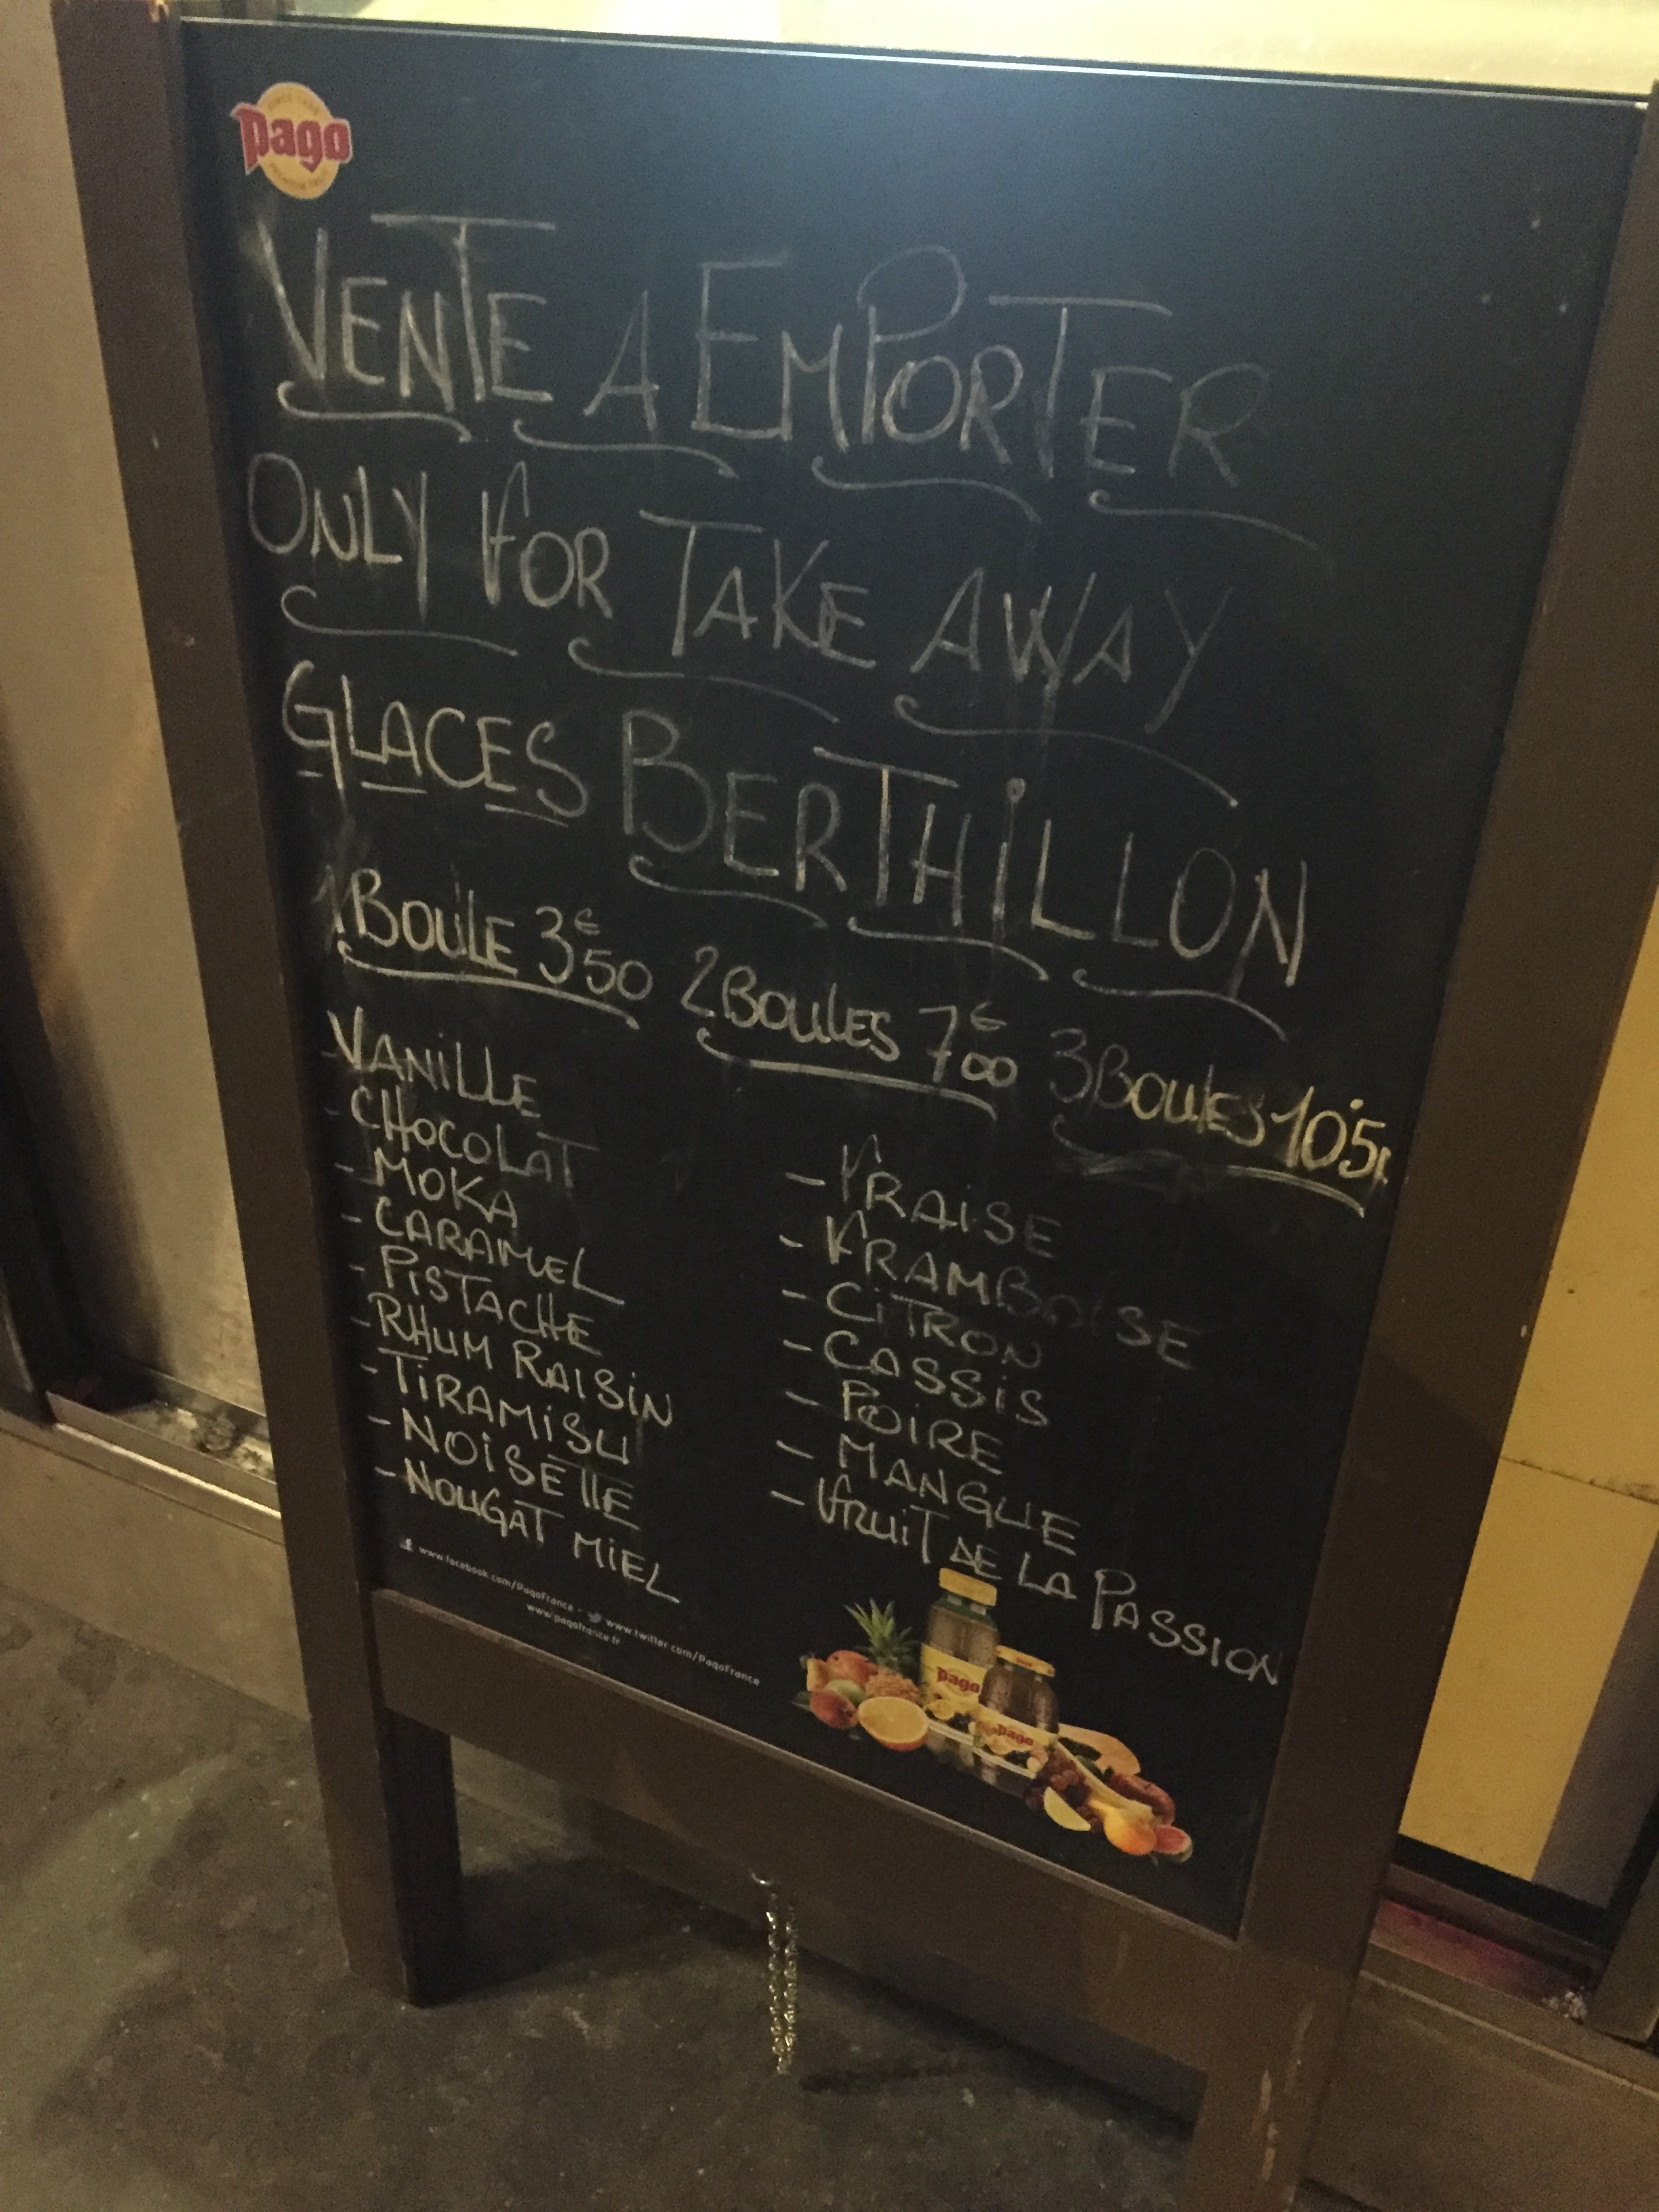 pago
VENTE A EMPORTER
ONLY FOR TAKE AWAY
GLACES BERTHILLON
1 BOULE 3€50 2 BOULES 7€00 3 BOULES 10€5
- VANILLE
- CHOCOLAT
- MOKA
- CARAMEL
- PISTACHE
- RHUM RAISIN
- TIRAMISU
- NOISETTE
- NOUGAT MIEL
- FRAISE
- FRAMBOISE
- CITRON
- CASSIS
- POIRE
- MANGUE
- FRUIT DE LA PASSION
www.facebook.com/PagoFrance - www.twitter.com/PagoFrance
www.pagofrance.fr
pago
pago